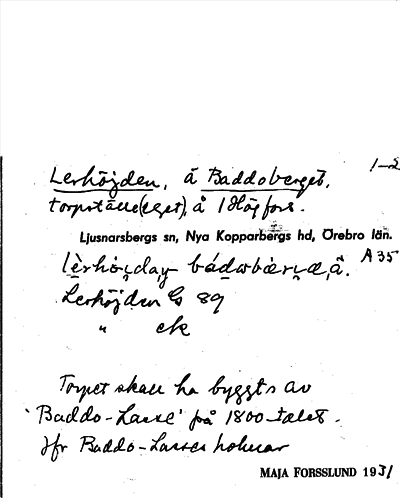 1-2
Lerhöjden, å Baddoberget,
torpställe(eget), å 1 Högfors.
Ljusnarsbergs sn, Nya Kopparbergs hd, Örebro län.
A 35
Lerhöjden 89
" ek
Torpet skall ha byggts av
'Baddo-Lasse' på 1800-talet.
Jfr Baddo-Lasses holmar
MAJA FORSSLUND 1931